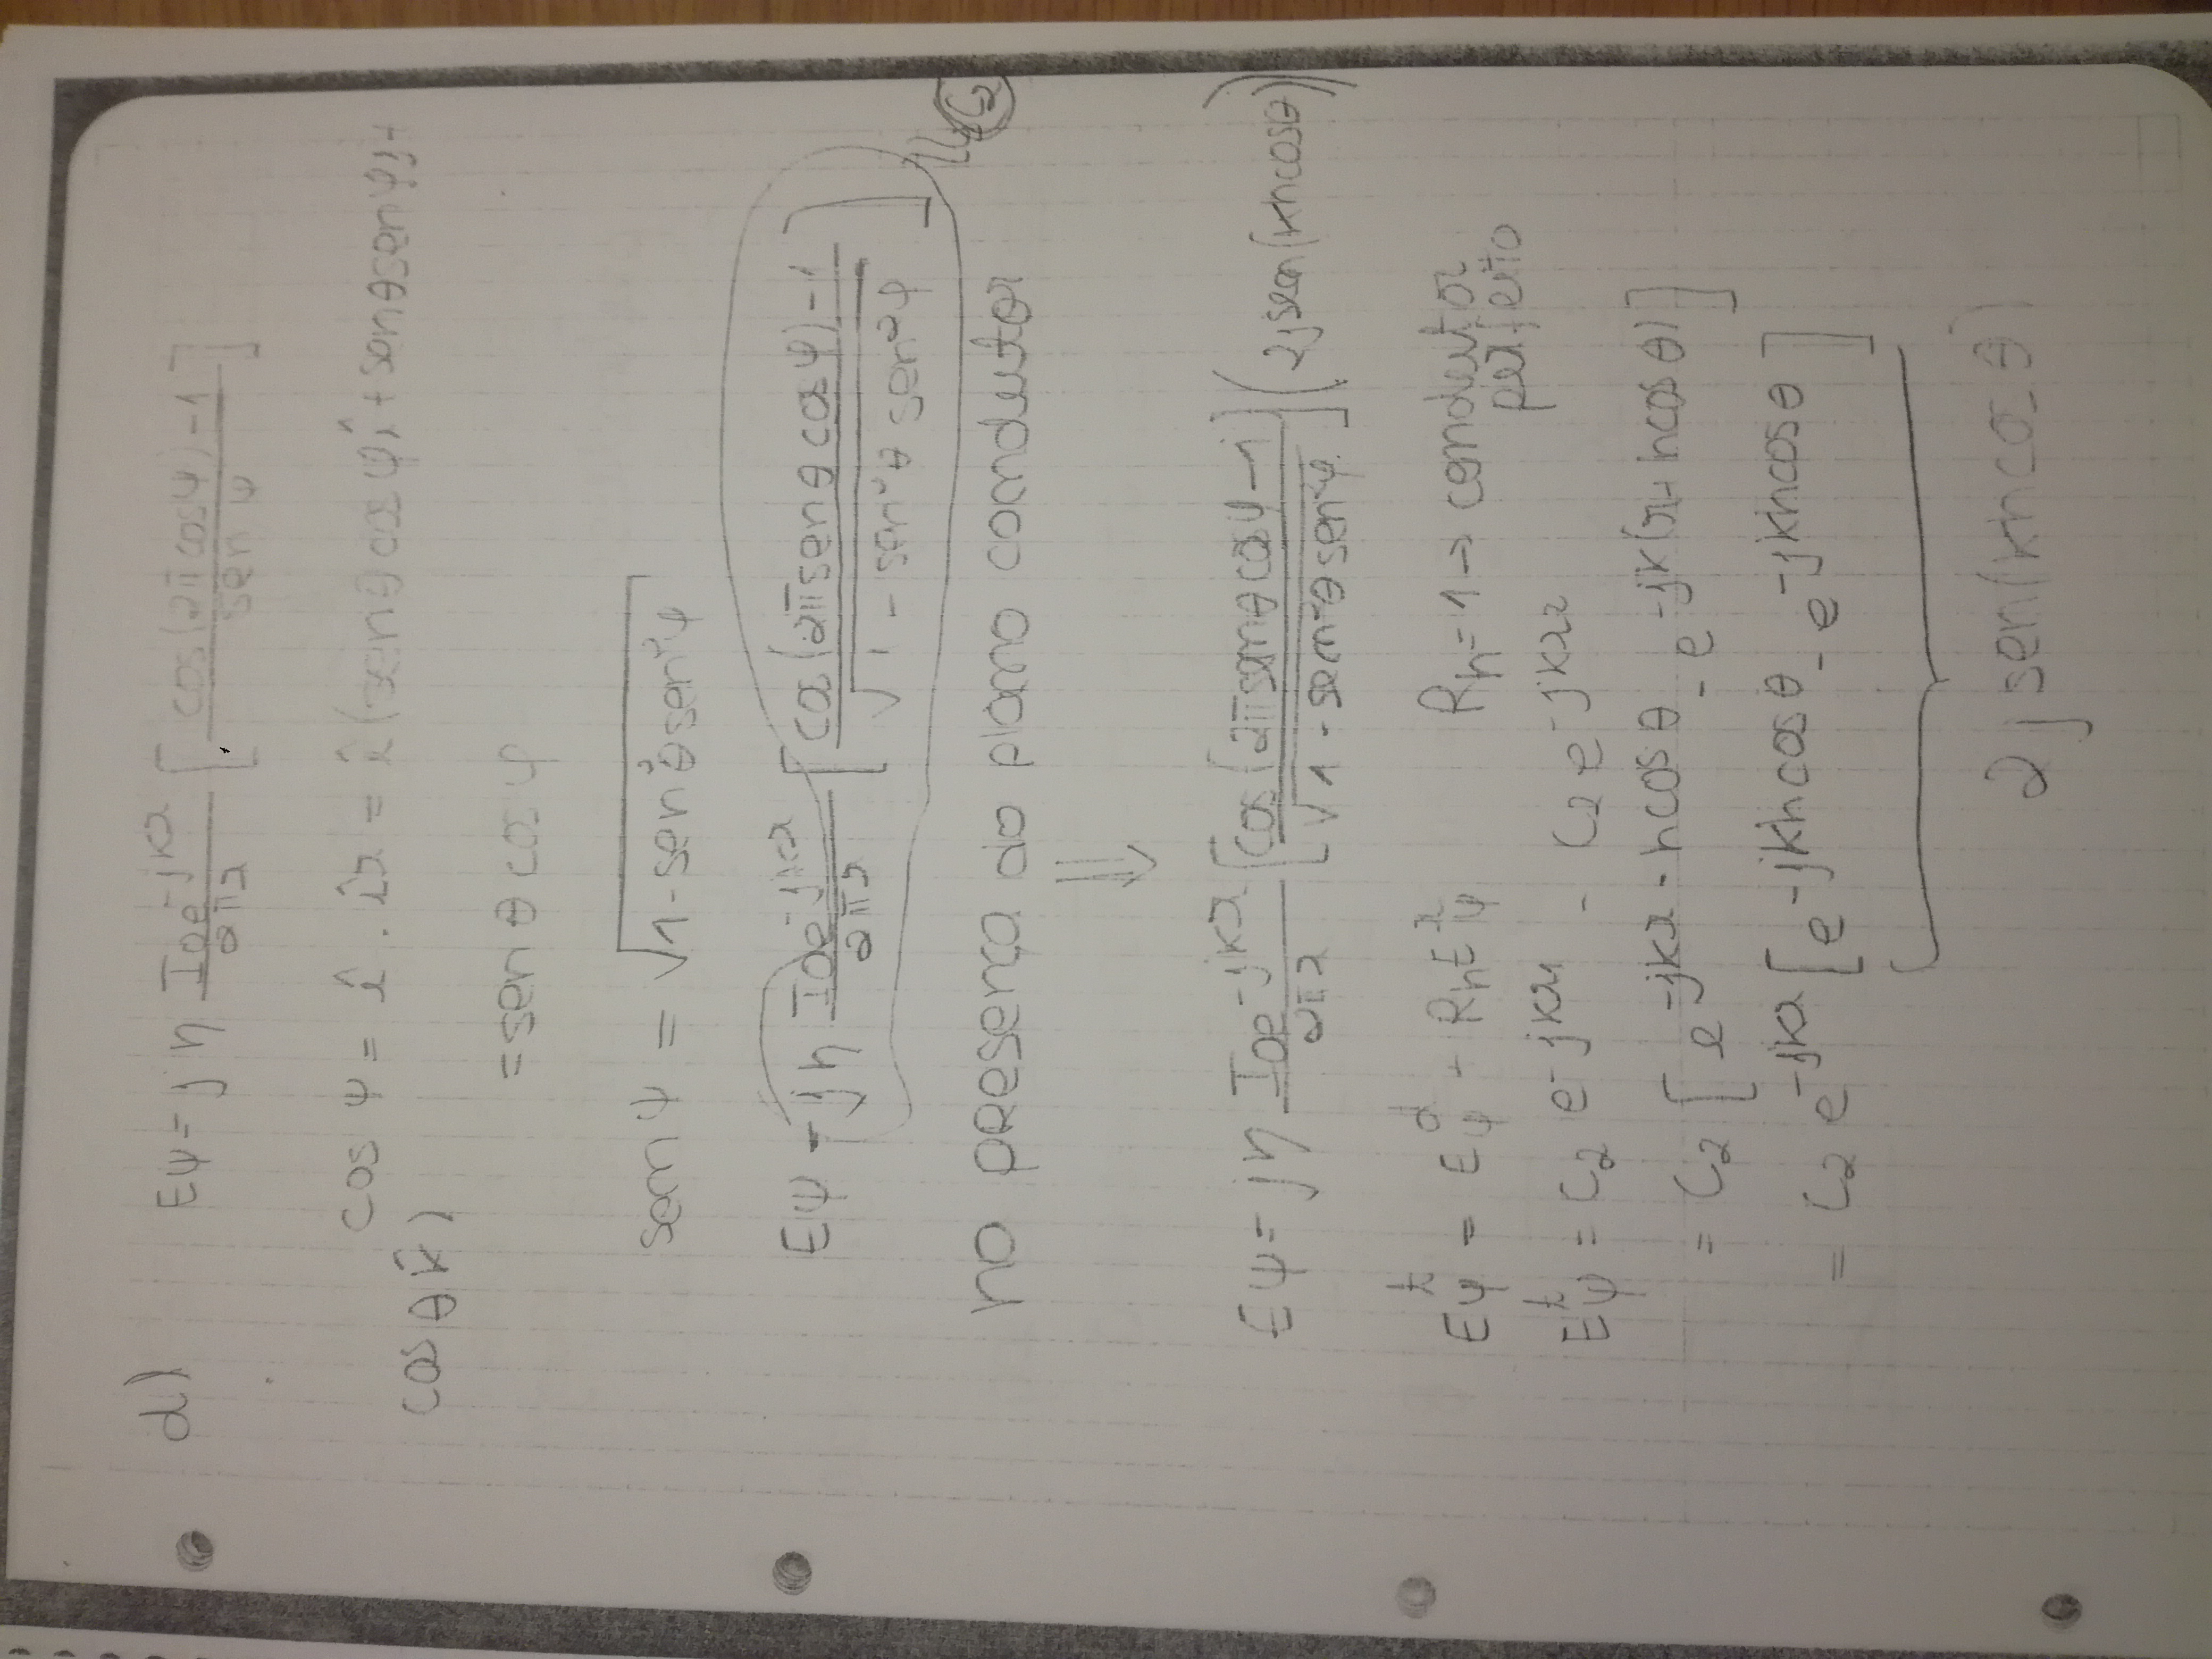 d)
Eψ = jη I0e^-jkr / 2πr [ cos(2π cosψ) - 1 / sen ψ ]
cos ψ = î . îr = î (senθ cos φ î + senθ sen φ ĵ +
cos θ k̂)
= sen θ cos φ
sen ψ = √1 - sen²θ sen²φ
Eψ = jη I0e^-jkr / 2πr [ cos(2π sen θ cos φ) - 1 / √1 - sen²θ sen²φ ]
C2
na presença do plano condutor
⇓
Eψ = jη I0e^-jkr / 2πr [ cos(2π senθ cos φ - 1 / √1 - sen²θ sen²φ ] (2j sen(kh cosθ))
Eψ^t = Eψ^d - Rh Eψ^r Rh = 1 → condutor
perfeito
Eψ^t = C2 e^-jkr1 - C2 e^-jkr2
= C2 [ e^-jkr - h cos θ - e^-jk(r + h cos θ) ]
= C2 e^-jkr [ e^-jkh cos θ - e^-jkh cos θ ]
2j sen(kh cos θ)